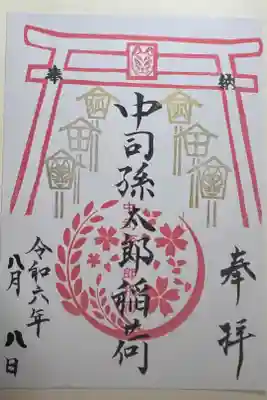 奉拝
奉納
中司孫太郎稲荷
令和六年
八月八日